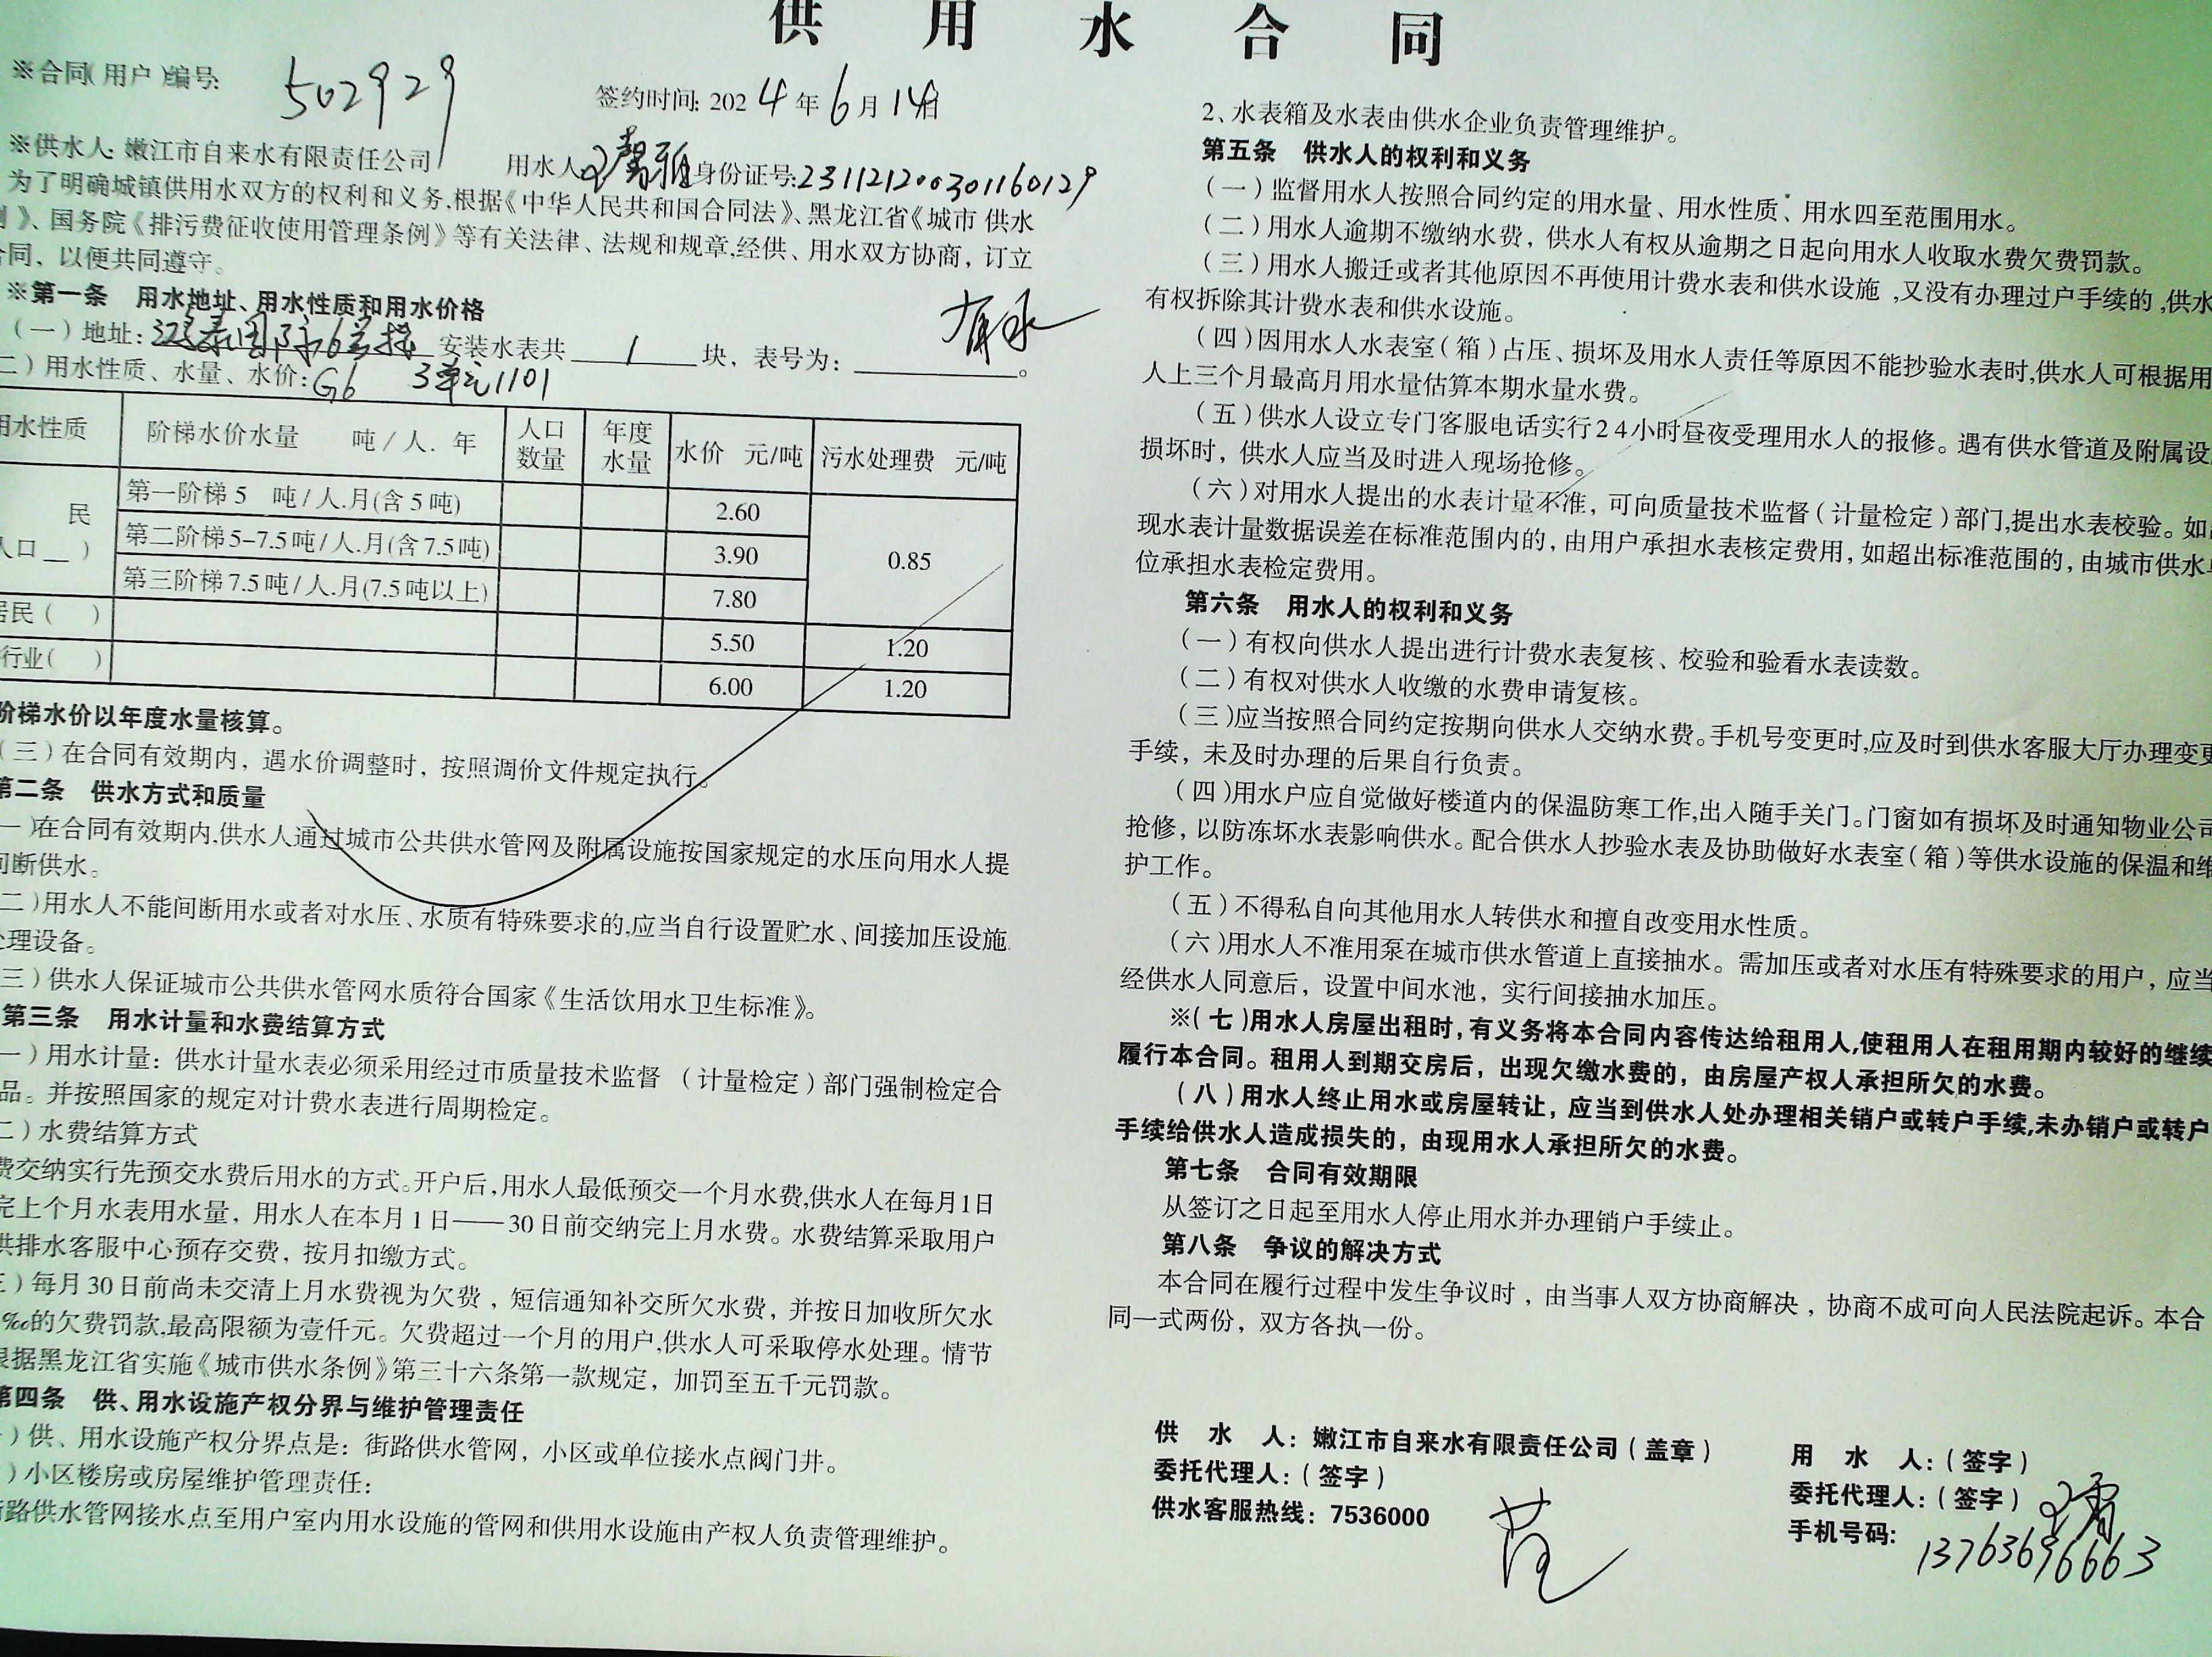 供用水合同
※合同(用户)编号: 502929
签约时间: 2024年6月14日
※供水人: 嫩江市自来水有限责任公司 用水人 馨雅 身份证号:231121200301160129
为了明确城镇供用水双方的权利和义务,根据《中华人民共和国合同法》、黑龙江省《城市供水
》、国务院《排污费征收使用管理条例》等有关法律、法规和规章,经供、用水双方协商，订立
合同，以便共同遵守。
※第一条 用水地址、用水性质和用水价格
(一)地址: 安装水表共 1 块，表号为: 。
二)用水性质、水量、水价: G6 3单元1101
用水性质 阶梯水价水量 吨/人.年 人口数量 年度水量 水价 元/吨 污水处理费 元/吨
民
人口__)
第一阶梯5 吨/人.月(含5吨) 2.60
第二阶梯5-7.5吨/人.月(含7.5吨) 3.90 0.85
第三阶梯7.5吨/人.月(7.5吨以上) 7.80
居民( ) 5.50 1.20
行业( ) 6.00 1.20
阶梯水价以年度水量核算。
(三)在合同有效期内，遇水价调整时，按照调价文件规定执行。
第二条 供水方式和质量
一)在合同有效期内,供水人通过城市公共供水管网及附属设施按国家规定的水压向用水人提
间断供水。
二)用水人不能间断用水或者对水压、水质有特殊要求的,应当自行设置贮水、间接加压设施
处理设备。
三)供水人保证城市公共供水管网水质符合国家《生活饮用水卫生标准》。
第三条 用水计量和水费结算方式
一)用水计量：供水计量水表必须采用经过市质量技术监督 (计量检定)部门强制检定合
品。并按照国家的规定对计费水表进行周期检定。
二)水费结算方式
费交纳实行先预交水费后用水的方式。开户后,用水人最低预交一个月水费,供水人在每月1日
完上个月水表用水量，用水人在本月1日——30日前交纳完上月水费。水费结算采取用户
供排水客服中心预存交费，按月扣缴方式。
三)每月30日前尚未交清上月水费视为欠费，短信通知补交所欠水费，并按日加收所欠水
‰的欠费罚款,最高限额为壹仟元。欠费超过一个月的用户,供水人可采取停水处理。情节
根据黑龙江省实施《城市供水条例》第三十六条第一款规定，加罚至五千元罚款。
第四条 供、用水设施产权分界与维护管理责任
)供、用水设施产权分界点是：街路供水管网，小区或单位接水点阀门井。
)小区楼房或房屋维护管理责任：
街路供水管网接水点至用户室内用水设施的管网和供用水设施由产权人负责管理维护。
2、水表箱及水表由供水企业负责管理维护。
第五条 供水人的权利和义务
(一)监督用水人按照合同约定的用水量、用水性质、用水四至范围用水。
(二)用水人逾期不缴纳水费，供水人有权从逾期之日起向用水人收取水费欠费罚款。
(三)用水人搬迁或者其他原因不再使用计费水表和供水设施,又没有办理过户手续的,供水
有权拆除其计费水表和供水设施。
(四)因用水人水表室(箱)占压、损坏及用水人责任等原因不能抄验水表时,供水人可根据用
人上三个月最高月用水量估算本期水量水费。
(五)供水人设立专门客服电话实行24小时昼夜受理用水人的报修。遇有供水管道及附属设
损坏时，供水人应当及时进入现场抢修。
(六)对用水人提出的水表计量不准，可向质量技术监督(计量检定)部门,提出水表校验。如
现水表计量数据误差在标准范围内的，由用户承担水表核定费用，如超出标准范围的，由城市供水
位承担水表检定费用。
第六条 用水人的权利和义务
(一)有权向供水人提出进行计费水表复核、校验和验看水表读数。
(二)有权对供水人收缴的水费申请复核。
(三)应当按照合同约定按期向供水人交纳水费。手机号变更时,应及时到供水客服大厅办理变更
手续，未及时办理的后果自行负责。
(四)用水户应自觉做好楼道内的保温防寒工作,出入随手关门。门窗如有损坏及时通知物业公司
抢修，以防冻坏水表影响供水。配合供水人抄验水表及协助做好水表室(箱)等供水设施的保温和维
护工作。
(五)不得私自向其他用水人转供水和擅自改变用水性质。
(六)用水人不准用泵在城市供水管道上直接抽水。需加压或者对水压有特殊要求的用户，应当
经供水人同意后，设置中间水池，实行间接抽水加压。
※(七)用水人房屋出租时,有义务将本合同内容传达给租用人,使租用人在租用期内较好的继续
履行本合同。租用人到期交房后，出现欠缴水费的，由房屋产权人承担所欠的水费。
(八)用水人终止用水或房屋转让，应当到供水人处办理相关销户或转户手续,未办销户或转户
手续给供水人造成损失的，由现用水人承担所欠的水费。
第七条 合同有效期限
从签订之日起至用水人停止用水并办理销户手续止。
第八条 争议的解决方式
本合同在履行过程中发生争议时，由当事人双方协商解决，协商不成可向人民法院起诉。本合
同一式两份，双方各执一份。
供水人：嫩江市自来水有限责任公司(盖章)
委托代理人：(签字)
供水客服热线：7536000
用水人：(签字)
委托代理人：(签字)
手机号码: 13763696663